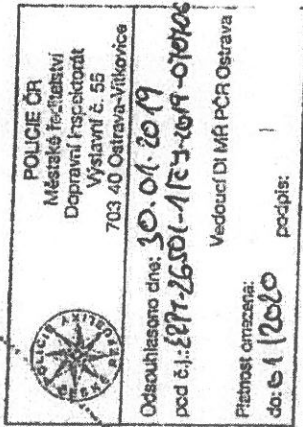 POLICIE ČR
Městské ředitelství
Dopravní inspektorát
Výstavní č. 55
703 40 Ostrava-Vítkovice
POLICIE
Odsouhlaseno dne: 30.01.2019
pod č.j.:
Vedoucí DI MŘ PČR Ostrava
Platnost omezena:
do: 01/2020
podpis: